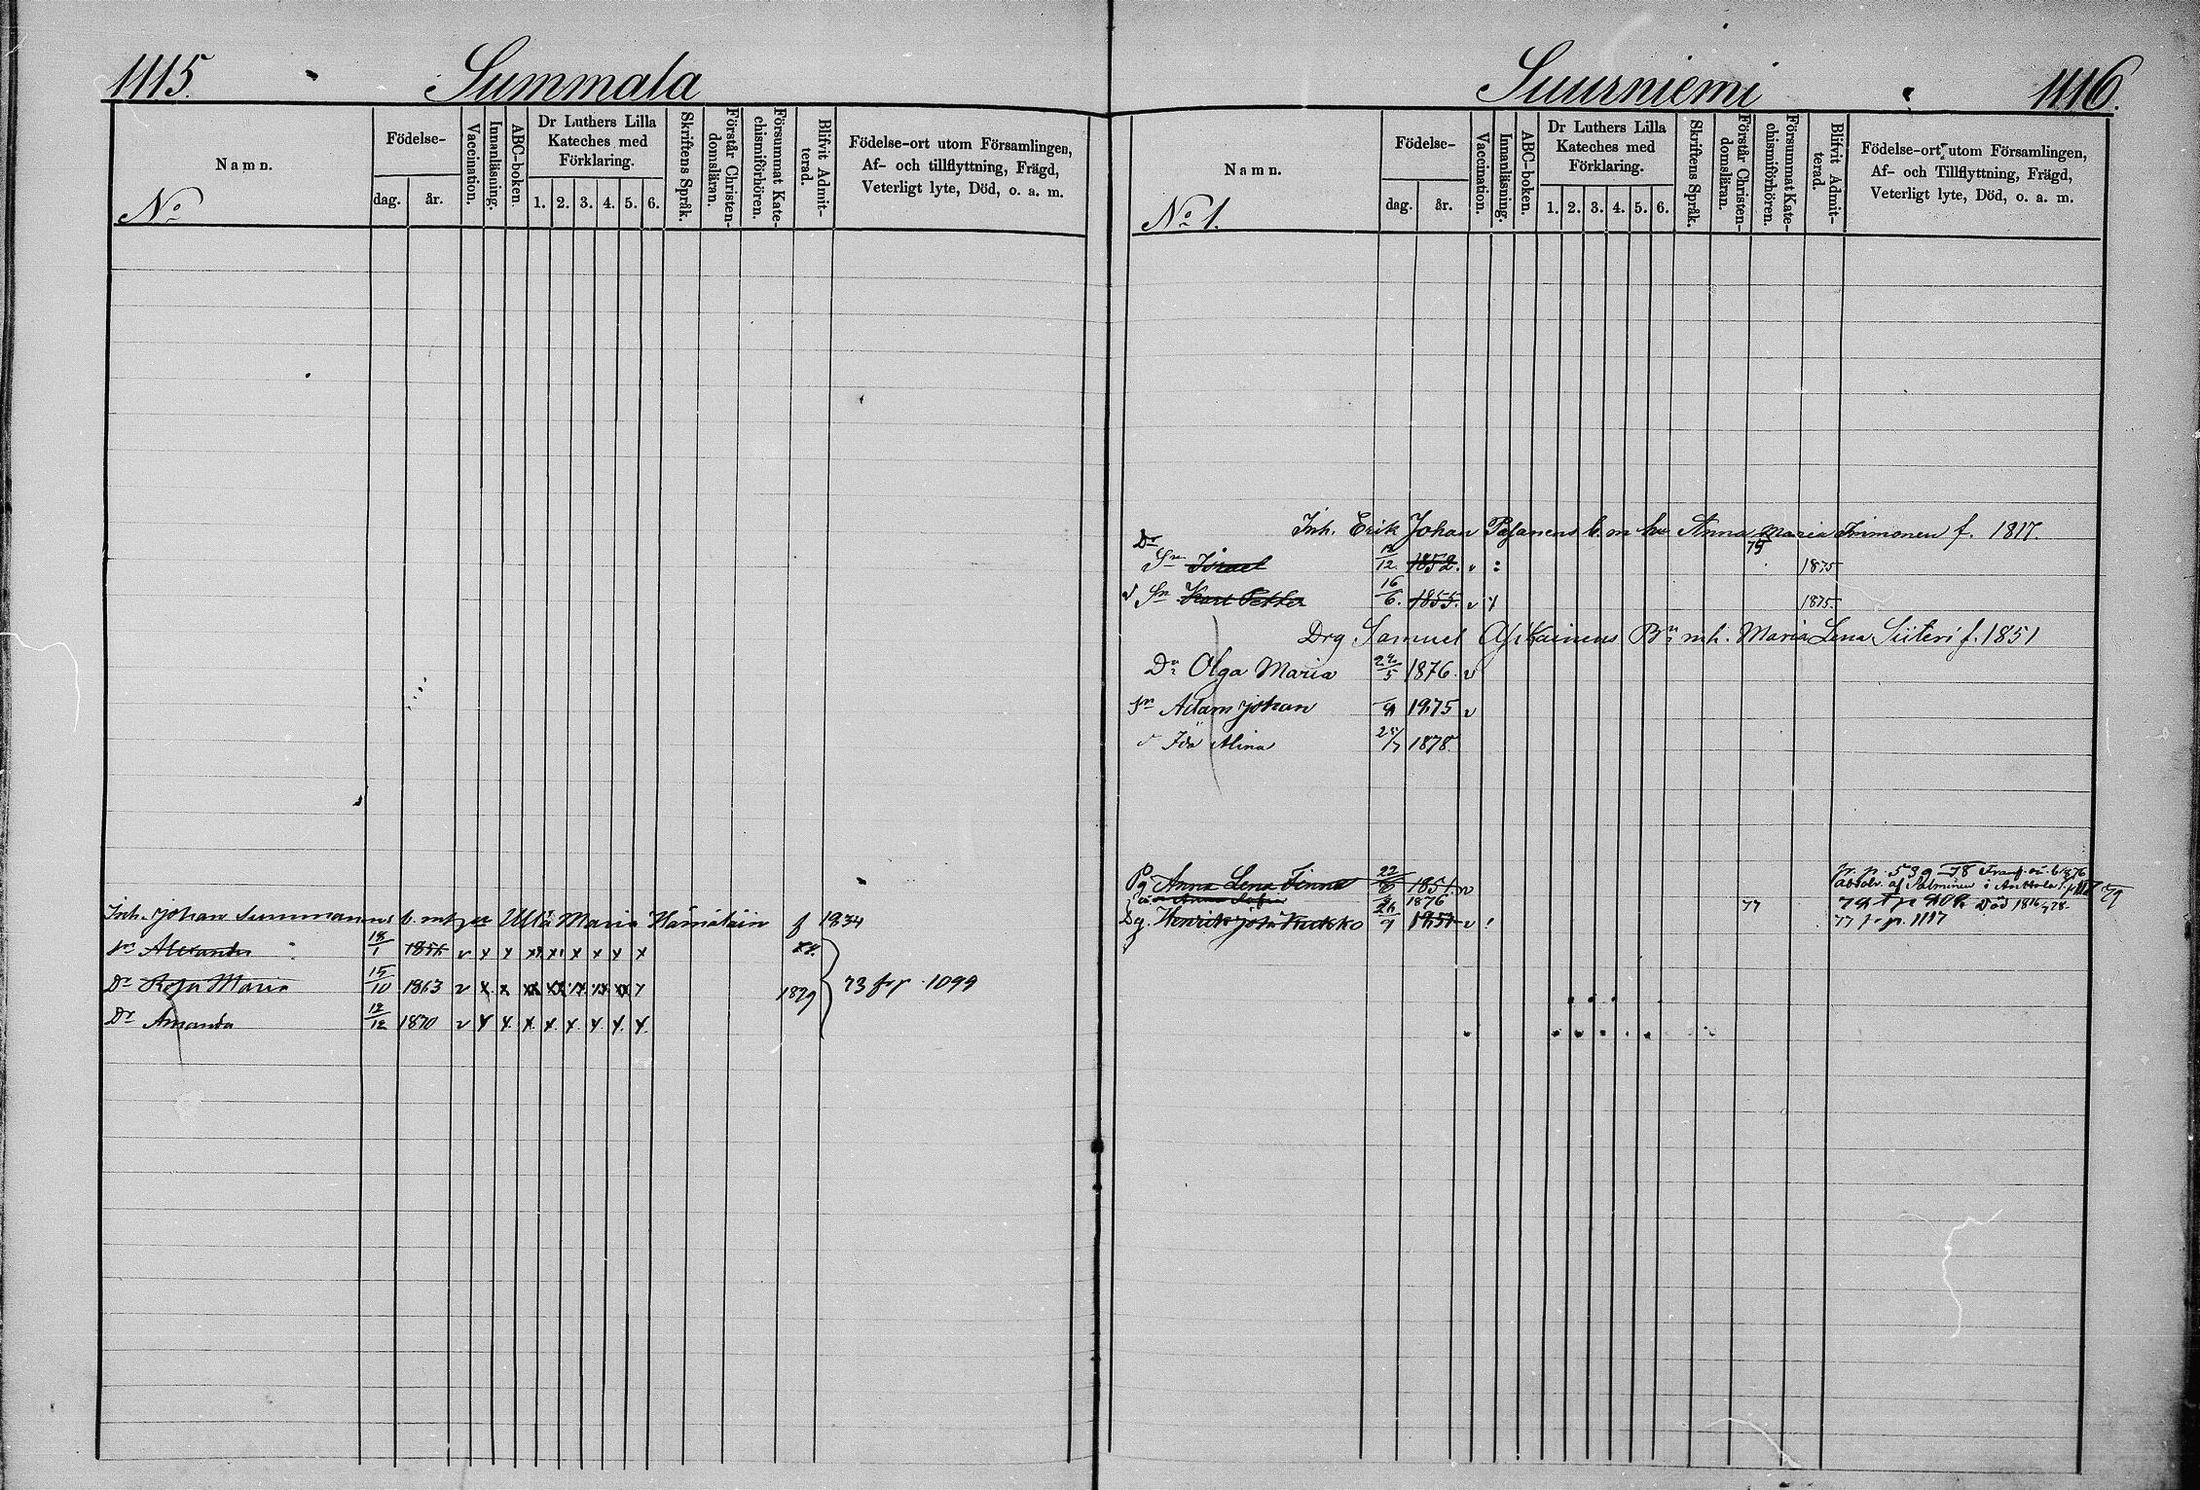 1115.
Summala
Namn.
Födelse-
dag.
år.
Vaccination.
Innanläsning.
ABC-boken.
Dr Luthers Lilla
Kateches med
Förklaring.
1. 2. 3. 4. 5. 6.
Skriftens Språk.
Förstår Christen-
domsläran.
Försummat Kate-
chismiförhören.
Blifvit Admit-
terad.
Födelse-ort utom Församlingen,
Af- och tillflyttning, Frägd,
Veterligt lyte, Död, o. a. m.
No
Inh. Johan Summanens b. m. Ulla Maria Hämäläin f 1834
Sn Alexander 18/1 v x x x x x x x x
Dr Rosa Maria 15/10 1863 v x x x x x x x x 1879 73 fr p 1099
Dr Amanda 12/12 1870 v x x x x x x x x
Suurniemi
1116.
Namn.
Födelse-
dag.
år.
Vaccination.
Innanläsning.
ABC-boken.
Dr Luthers Lilla
Kateches med
Förklaring.
1. 2. 3. 4. 5. 6.
Skriftens Språk.
Förstår Christen-
domsläran.
Försummat Kate-
chismiförhören.
Blifvit Admit-
terad.
Födelse-ort utom Församlingen,
Af- och Tillflyttning, Frägd,
Veterligt lyte, Död, o. a. m.
No 1.
Inh. Erik Johan Pasanens b. m. hu Anna Maria Immonen f. 1817.
Dr
Sn Israel 12. 1852. v : 75 1875
v Sn Karl Petter 16/6. 1855. v x 1875.
Drg. Samuel Asikainens Bn m h. Maria Lena Siiteri f. 1851
Dr Olga Maria 22/5 1876. v
Sn Adam Johan 9 1875 v
Ida Alina 25/7 1878.
Pg Anna Lena Finna 22/6 1851. v fr. p. 539
absolv. af Salminen i Anttola
1876 Död
Dg. Henrik Joh. Kuckko 26/9 1851 v ! 77 77 fr p. 1117